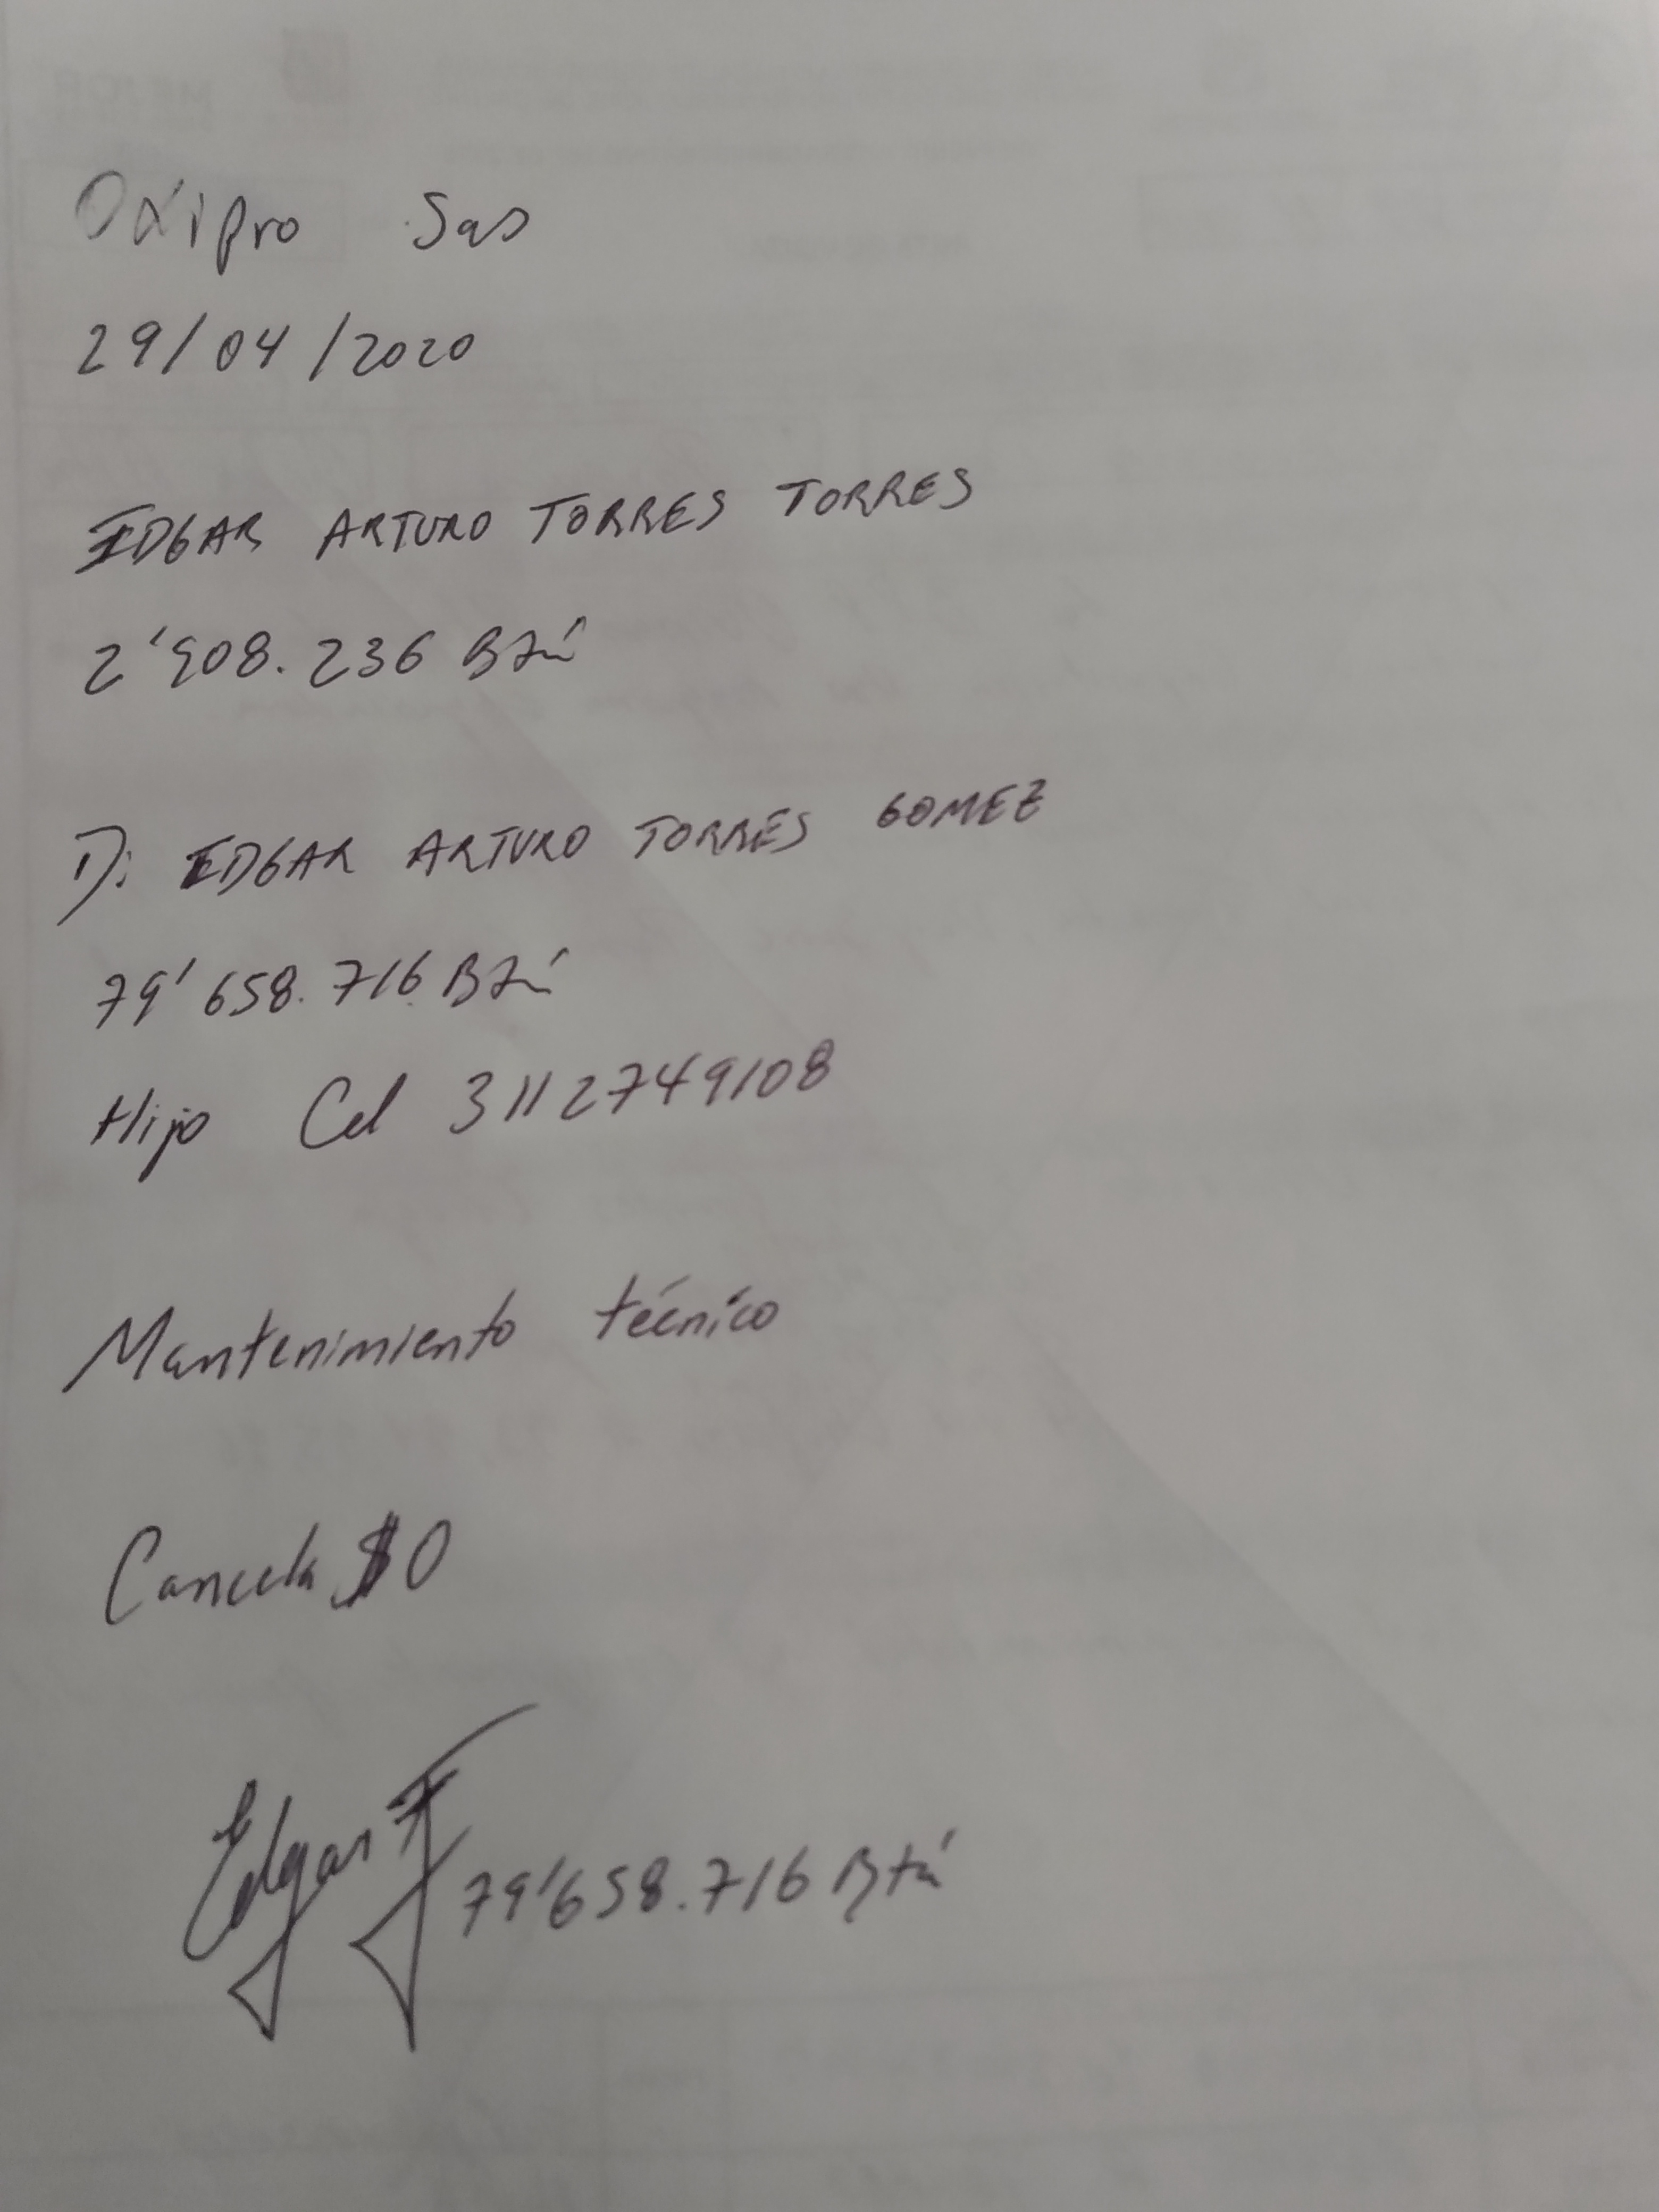 Oxipro Sas
29/04/2020
EDGAR ARTURO TORRES TORRES
2'908.236 Btá
D: EDGAR ARTURO TORRES GOMEZ
79'658.716 Btá
Hijo Cel 3112749108
Mantenimiento técnico
Cancela $0
Edgar T 79'658.716 Btá